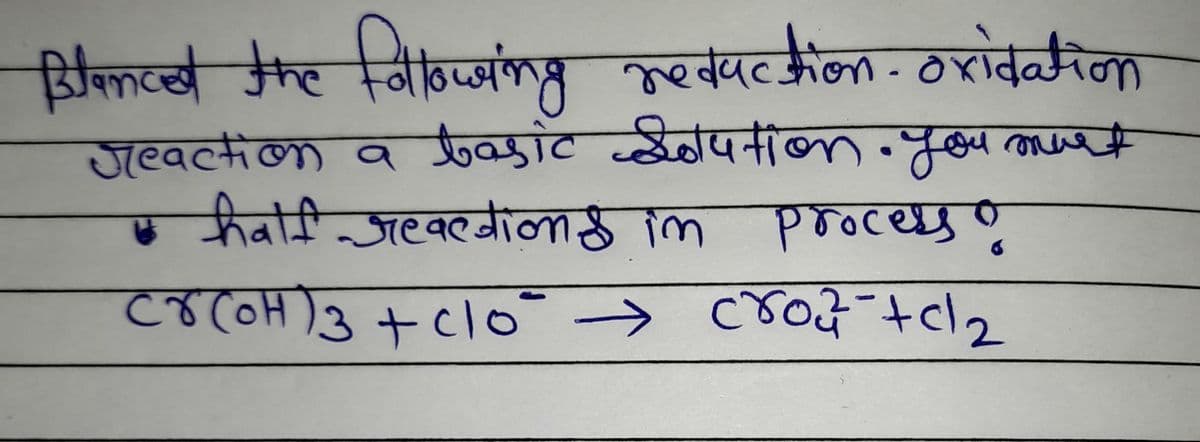 Blanced the following reduction - oxidation
reaction a basic Solution . you must
half reactions in process ?
Cr(OH)3 + ClO⁻ → CrO₄²⁻ + Cl₂